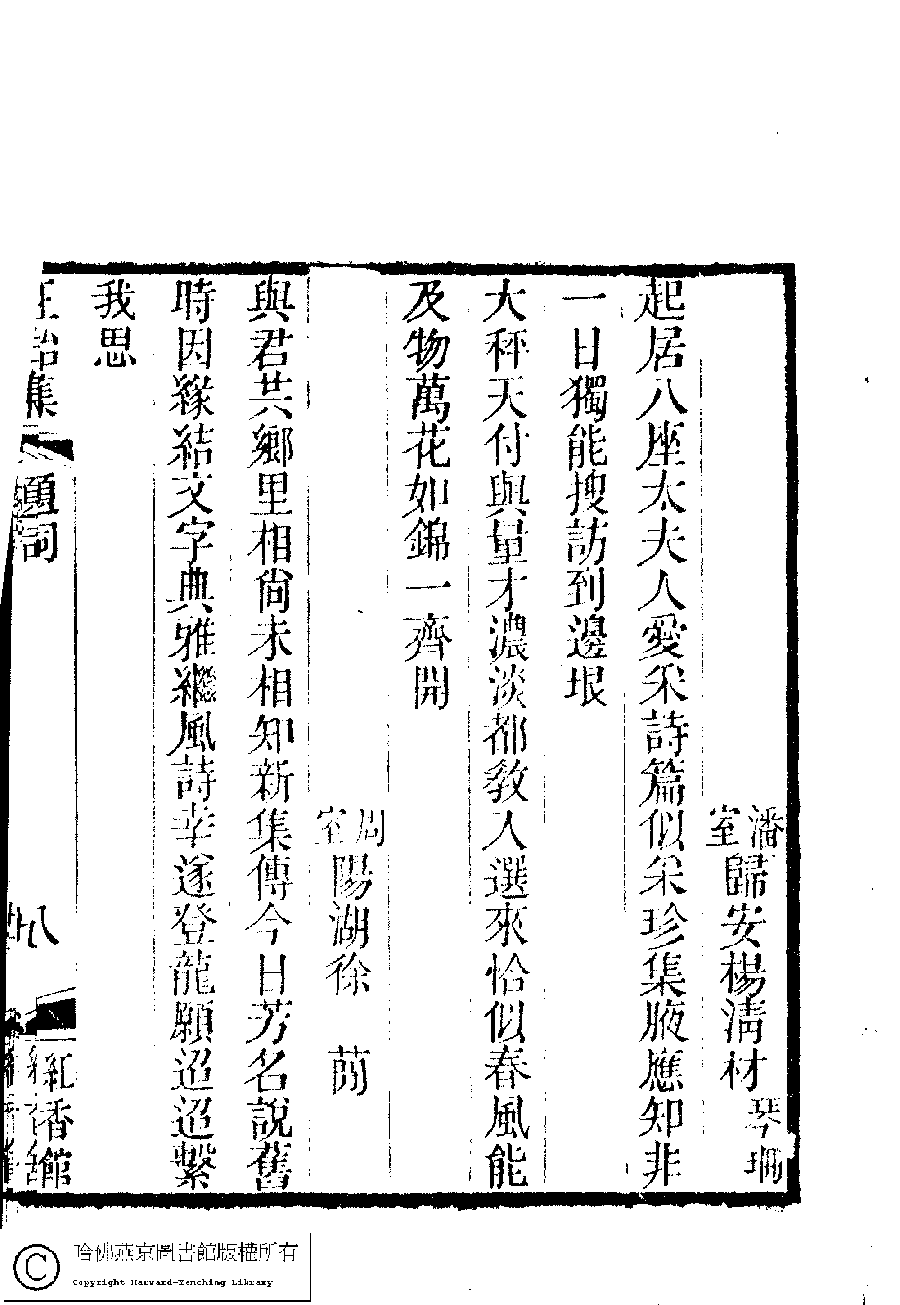 潘室歸安楊清材琴珊
起居八座太夫人愛采詩篇似采珍集腋應知非
一日獨能搜訪到邊垠
大秤天付與量才濃淡都教人選來恰似春風能
及物萬花如錦一齊開
周室陽湖徐 荕
與君共鄉里相尙未相知新集傳今日芳名說舊
時因緣結文字典雅繼風詩幸遂登龍願迢迢繫
我思
正始集 題詞 八 紅香館
哈佛燕京圖書館版權所有
Copyright Harvard-Yenching Library